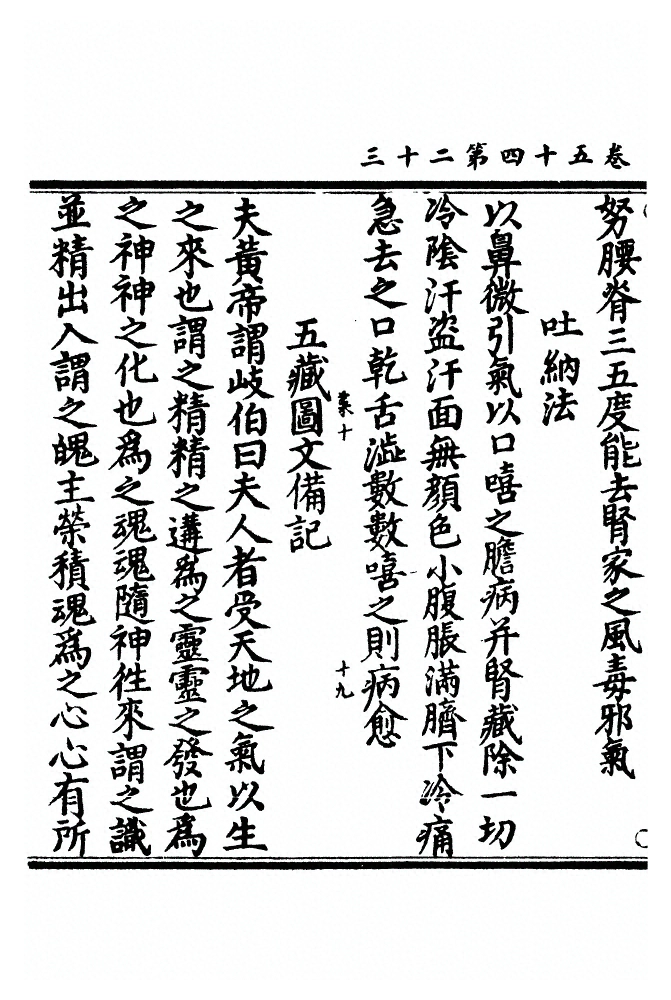 卷五十四第二十三
努腰脊三五度能去腎家之風毒邪氣
吐納法
以鼻微引氣以口嘻之膽病并腎藏除一切
冷陰汗盜汗面無顏色小腹脹滿臍下冷痛
急去之口乾舌澁數數嘻之則病愈
菜十
十九
五藏圖文備記
夫黃帝謂岐伯曰夫人者受天地之氣以生
之來也謂之精精之遘為之靈靈之發也為
之神神之化也為之魂魂隨神徃來謂之識
並精出入謂之魄主榮積魂為之心心有所